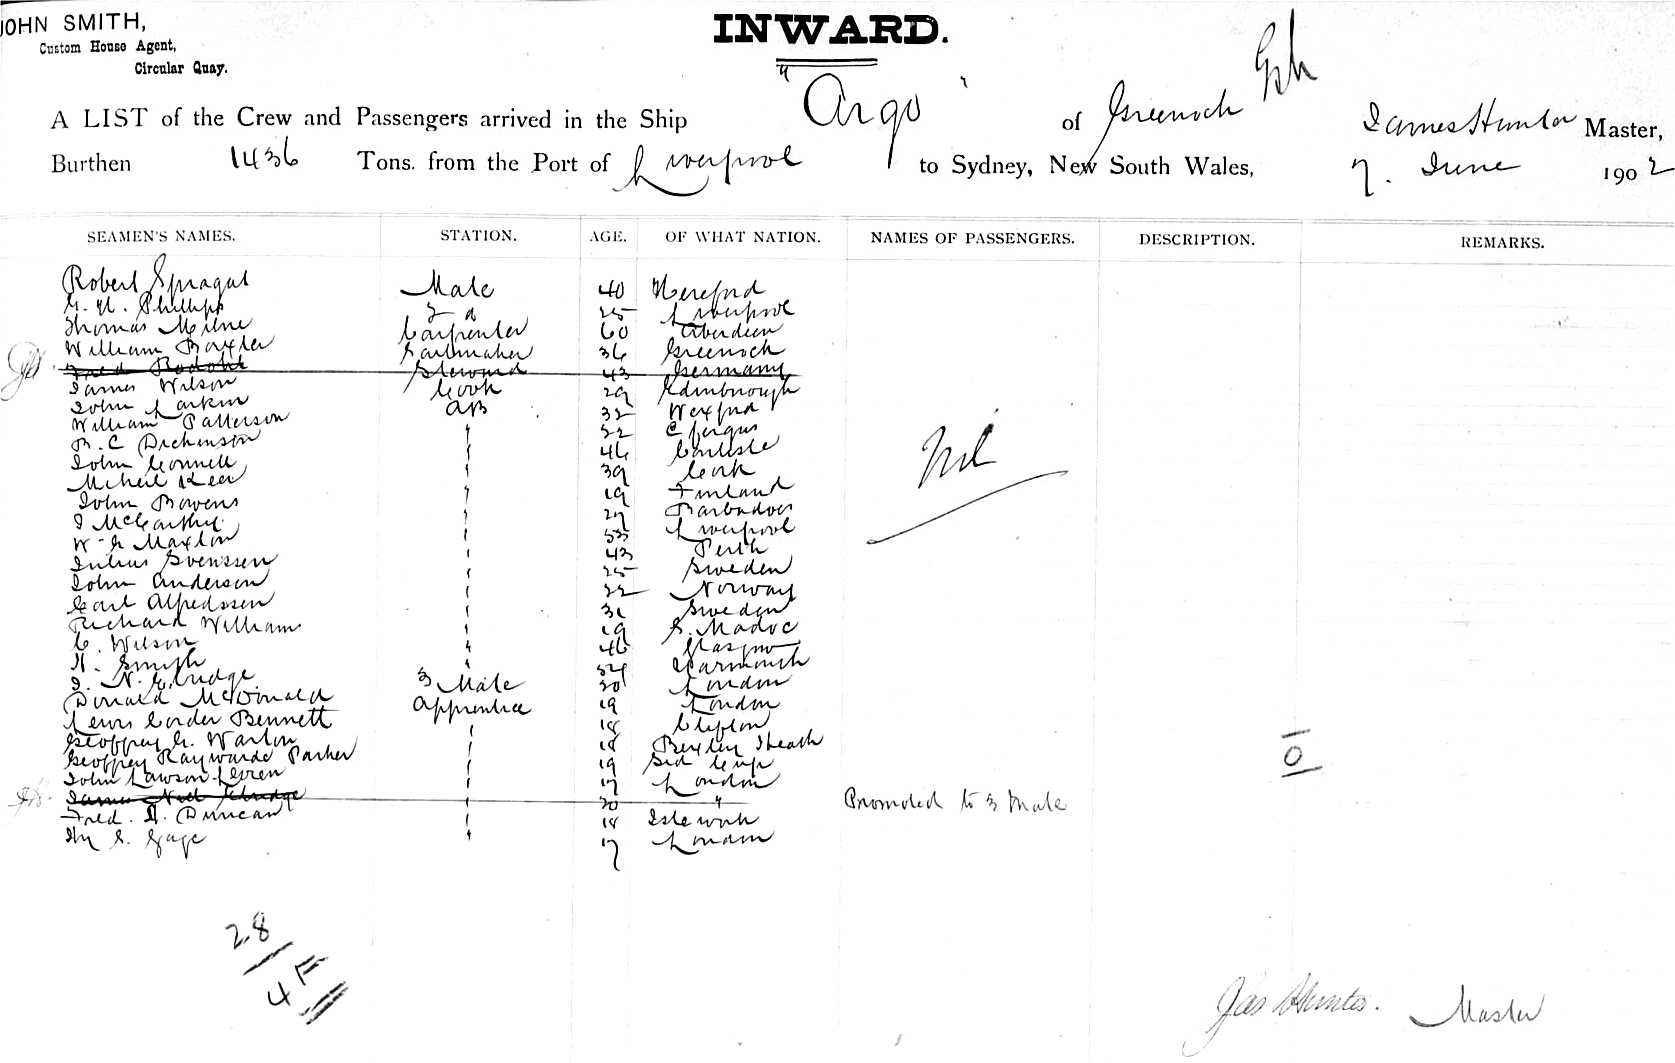 JOHN SMITH,
Custom House Agent,
Circular Quay.
INWARD.
A LIST of the Crew and Passengers arrived in the Ship "Argo" of Greenock James Hunter Master,
Burthen 1436 Tons. from the Port of Liverpool to Sydney, New South Wales, 7. June 1902
SEAMEN'S NAMES. STATION. AGE. OF WHAT NATION. NAMES OF PASSENGERS. DESCRIPTION. REMARKS.
Robert Mate 40 Hereford
Phillips 2 d 25 Liverpool
Thomas Milne Carpenter 60 Aberdeen
William Baxter Sailmaker 36 Greenock
Fred Steward 43 Germany
James Wilson Cook 29 Edinborough
John Larkin AB 32 Wexford
William Patterson " 22 C fergus
R. C Dickinson " 46 Carlisle
John Connell " 39 Cork
" 19 Finland
John Bowens " 27 Barbados
J McCarthy " 53 Liverpool
W. G Maxton " 43 Perth
Julius Svenssen " 25 Sweden
John Anderson " 22 Norway
Carl Alfredssen " 31 Sweden
Richard William " 19 P. Madoc
C. Wilson " 46 Glasgow
H. Smith " Yarmouth
J. N. Elridge 3 Mate 20 London
Donald McDonald Apprentice 19 London
Lewis Corder Bennett " 18 Clifton
Geoffrey G. Warton " 18 Bexley Heath
Geoffrey Raywarde Parker " 19 Sid Cup
John Lawson " 17 London
James Neil Elridge " 20 " Promoted to 3 Mate
Fred. H. Duncan " 18 Isleworth
Hy S. Gage " 17 London
Nil
0
28
4
Jas Hunter. Master